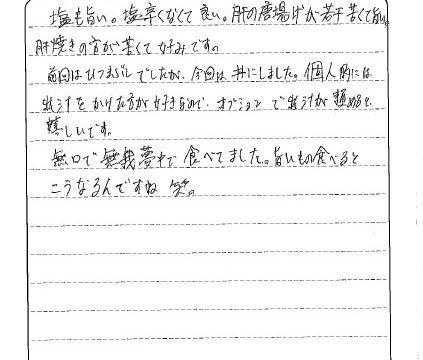 塩も旨い。塩辛くなくて良い。肝の唐揚げが若干苦くて旨い。
肝焼きの方が苦くて好みです。
前回はひつまぶしでしたが、今回は丼にしました。個人的には
出汁をかけた方が好きなので、オプションで出汁が頼めると
嬉しいです。
無口で無我夢中で食べてました。旨いもの食べると
こうなるんですね 笑。